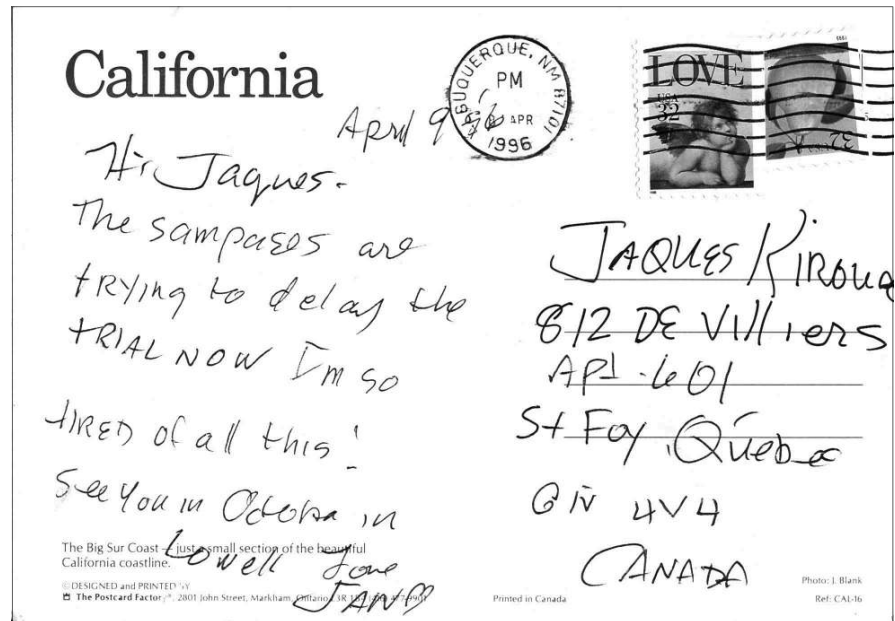 California
ALBUQUERQUE, NM 87101
PM
APR
1996
LOVE
USA
32
April 9 96
Hi Jaques.
The sampases are
trying to delay the
TRIAL NOW I'm so
tired of all this!
See you in October in
Lowell Love
JAN
JAQUES KIROUA
812 DE VIlliers
APt. 601
St Foy, Québec
G1V 4V4
CANADA
The Big Sur Coast – just a small section of the beautiful
California coastline.
© DESIGNED and PRINTED BY
The Postcard Factory, 2801 John Street, Markham, Ontario
Printed in Canada
Photo: J. Blank
Ref: CAL-16